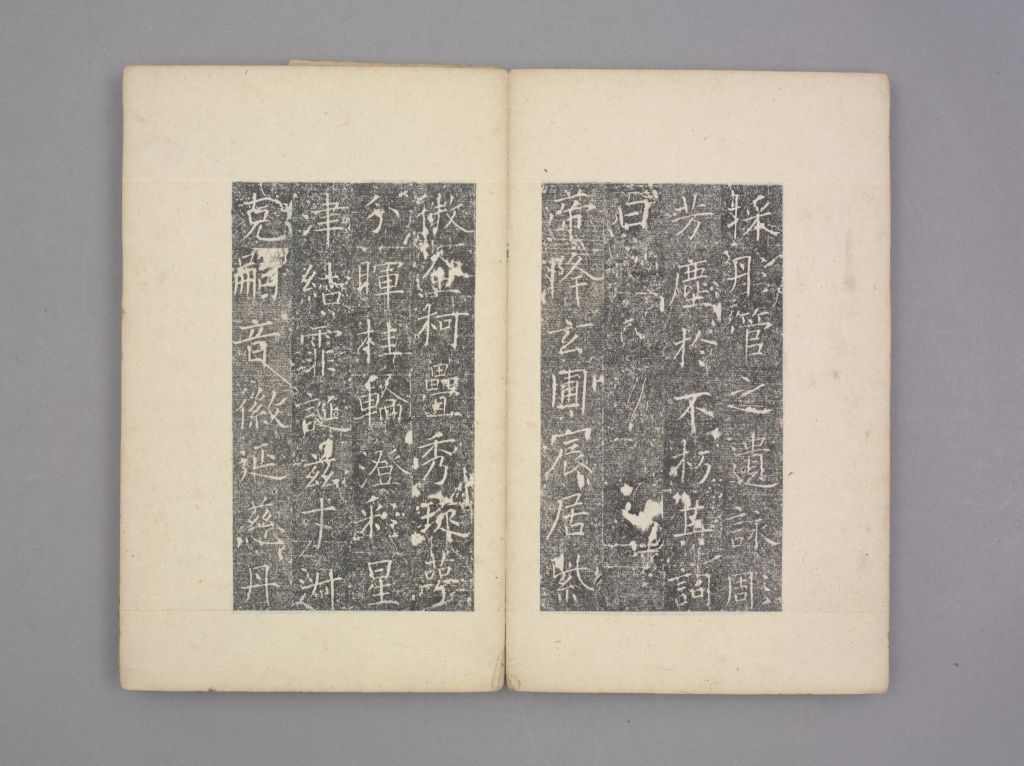 採丹管之遺詠彫
芳塵於不朽其詞
曰
帝降玄圃宸居紫
微金柯疊秀瓊萼
分暉桂輪澄彩星
津結霏誕茲才淑
克嗣音徽延慈丹